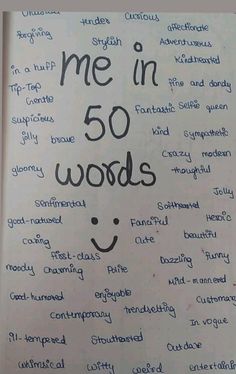 Unusual tender curious
forgiving affectionate
Stylish Adventurous
in a huff me in Kindhearted
Tip-Top fine and dandy
Gentle
Suspicious 50 Fantastic Selfie queen
jolly brave kind Sympathetic
Crazy modern
gloomy words thoughtful
Jolly
Sentimental Softhearted
good-natured Fanciful Heroic
caring Cute beautiful
First-class Dazzling Funny
moody Charming Polite
Mild-mannered
Good-humored enjoyable
Contemporary trendsetting
In vogue
Ill-tempered Stouthearted
Outdare
whimsical witty weird